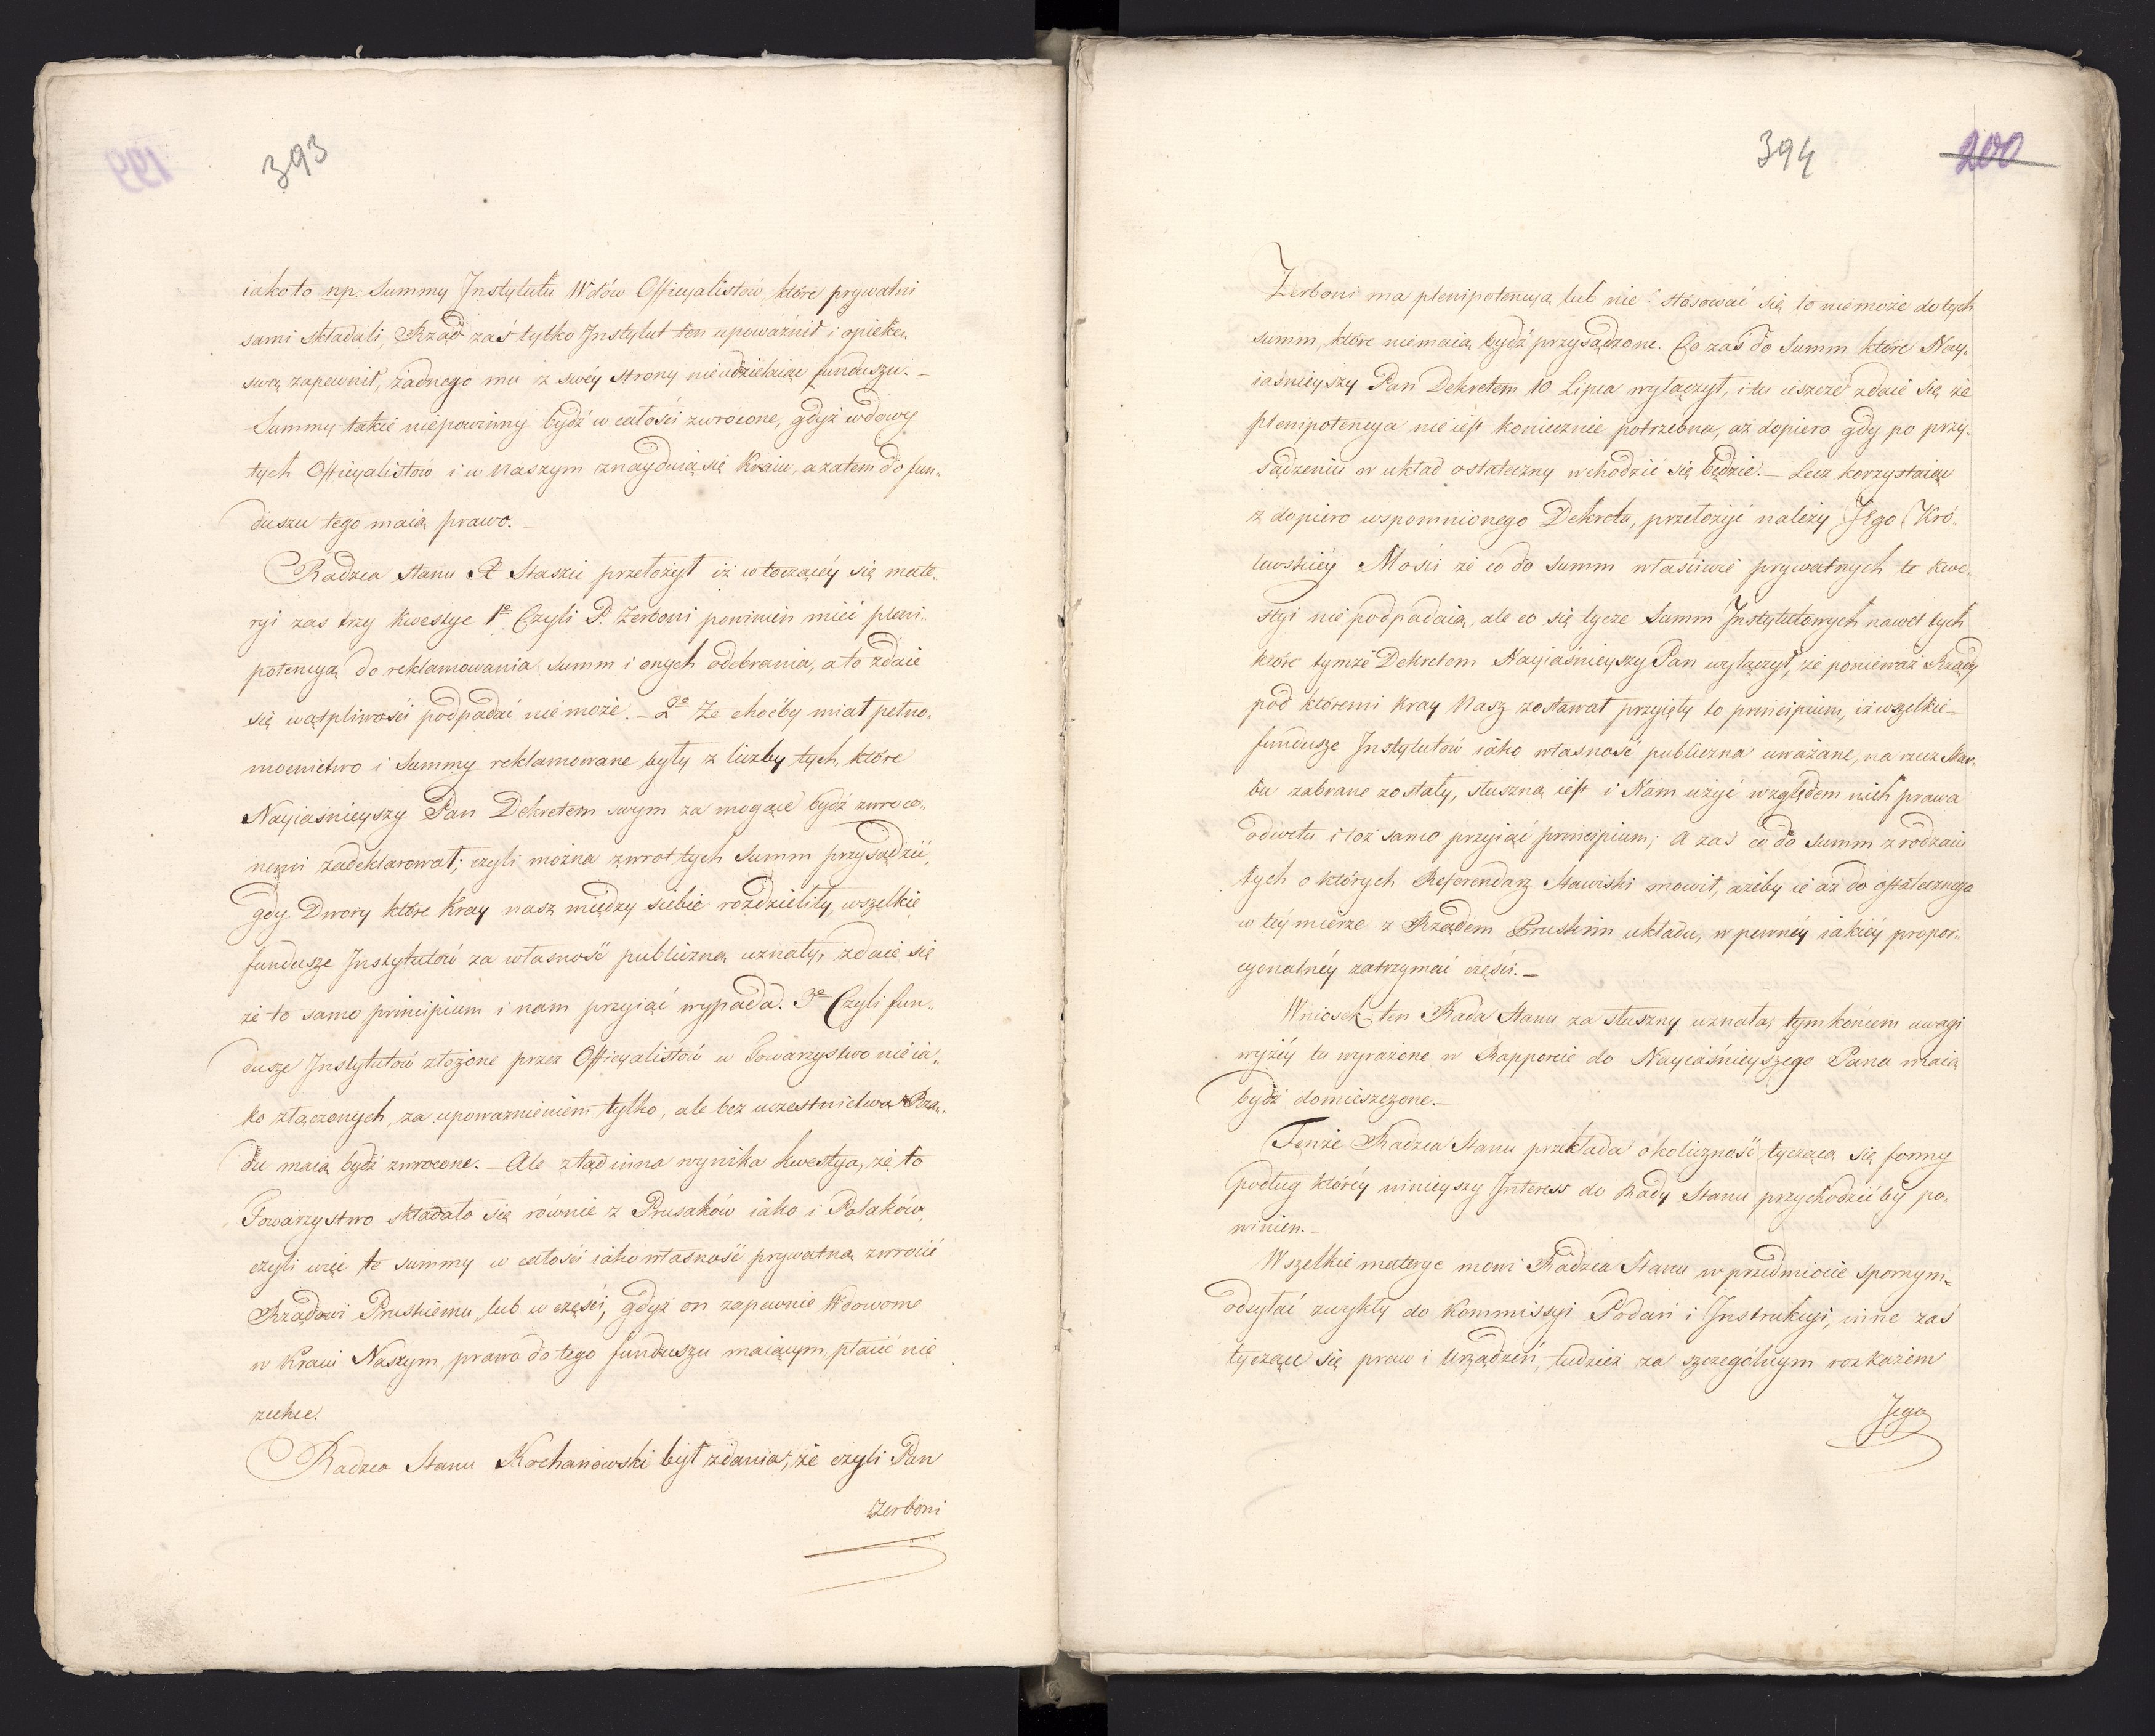 199
393
iakoto np. Summy Jnstytutu Wdów Officyalistów, które prywatni
sami składali, Rząd zaś tylko Jnstytut ten upoważnił i opiekę
swą zapewnił, żadnego mu z swéy strony nieudzielaiąc funduszu. –
Summy takie niepowinny bydź w całości zwrocone, gdyż wdowy
tych Officyalistów i w Naszym znayduią się Kraiu, a zatem do fun„
duszu tego maią prawo. –
Radzca Stanu X Staszic przełożył iż w toczącéy się mate„
ryi zas trzy kwestye 1e Czyli P. Zerboni powinien mieć pleni„
potencyą do reklamowania summ i onych odebrania, a to zdaie
się wątpliwości podpadać nie może. – 2e Że choćby miał pełno„
mocnictwo i Summy reklamowane były z liczby tych, które
Nayiaśnieyszy Pan Dekretem swym za mogące bydź zwroco„
nemi zadeklarował; czyli można zwrot tych Summ przysądzić,
gdy Dwory które Kray nasz między siebie rozdzieliły, wszelkie
fundusze Jnstytutów za własność publiczną uznały, zdaie się
że to samo principium i nam przyiąć wypada. 3e Czyli fun„
dusze Jnstytutów złożone przez Officyalistów w Towarzystwo nieia„
ko złączonych, za upoważnieniem tylko, ale bez uczestnictwa Rzą„
du maią bydź zwrocone. – Ale ztąd inna wynika kwestya, że to
Towarzystwo składało się równie z Prusaków iako i Polaków,
czyli więc te summy w całości iako własność prywatną zwrocić
Rządowi Pruskiemu, lub w części, gdyż on zapewnie Wdowom
w Kraiu Naszym, prawo do tego funduszu maiącym, płacić nie
zechce.
Radzca Stanu Kochanowski był zdania, że czyli Pan
Zerboni
394
200
Zerboni ma plenipotencyą lub nie? stósować się to niemoże do tych
summ, które niemaią bydź przysądzone. Co zaś do Summ które Nay„
iaśnieyszy Pan Dekretem 10 Lipca wyłączył, i tu ieszcze zdaie się że
plenipotencya nie iest koniecznie potrzebna, aż dopiero gdy po przy„
sądzeniu w układ ostateczny wchodzić się będzie. – Lecz korzystaiąc
z dopiero wspomnionego Dekretu, przełożyć należy Jego Kró„
lewskiéy Mości że co do Summ właściwie prywatnych te kwe„
styi nie podpadaią, ale co się tycze Summ Jnstytutowych nawet tych
które tymże Dekretem Nayiaśnieyszy Pan wyłączył, że ponieważ Rządy
pod któremi Kray Nasz zostawał przyięły to principium, iż wszelkie
fundusze Jnstytutów iako własność publiczna uważane, na rzecz Skar„
bu zabrane zostały, słuszną iest i Nam użyć względem nich prawa
odwetu i toż samo przyiąć principium; A zaś co do Summ z rodzaiu
tych o których Referendarz Stawiski mowił, ażeby ie aż do ostatecznego
w téy mierze z Rządem Pruskim układu, w pewnéy iakiéy propor„
cyonalnéy zatrzymać części. –
Wniosek ten Rada Stanu za słuszny uznała, tym końcem uwagi
wyżéy tu wyrażone w Rapporcie do Nayiaśnieyszego Pana maią
bydź domieszczone. –
Tenże Radzca Stanu przekłada okoliczność tyczącą się formy
podług któréy ninieyszy Jnteress do Rady Stanu przychodzić by po„
winien. –
Wszelkie materye mowi Radzca Stanu w przedmiocie spornym
odsyłać zwykły do Kommissyi Podań i Jnstrukcyi, inne zaś
tyczące się praw i Urządzeń, tudzież za szczególnym rozkazem
Jego